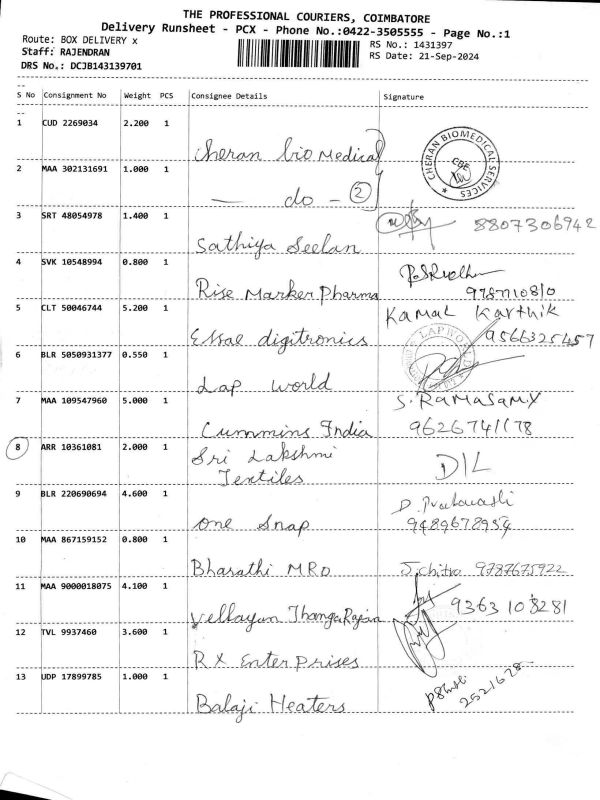 THE PROFESSIONAL COURIERS, COIMBATORE
Delivery Runsheet - PCX - Phone No.:0422-3505555 - Page No.:1
Route: BOX DELIVERY x
RS No.: 1431397
Staff: RAJENDRAN
RS Date: 21-Sep-2024
DRS No.: DCJB143139701
S No Consignment No Weight PCS Consignee Details Signature
1 CUD 2269034 2.200 1 Cheran bio Medical
CHERAN BIOMEDICAL SERVICES CBE
2 MAA 302131691 1.000 1 — do - 2
3 SRT 48054978 1.400 1 Sathiya Seelan 8807306942
4 SVK 10548994 0.800 1 Rise Marker Pharma 9787710810
5 CLT 50046744 5.200 1 Essae digitronics Kamal Karthik
9566325457
6 BLR 5050931377 0.550 1 Lap world
LAP WORLD
7 MAA 109547960 5.000 1 Cummins India S. RAMASAMY
9626741178
8 ARR 10361081 2.000 1 Sri Lakshmi
Textiles D/L
9 BLR 220690694 4.600 1 One Snap D.
9489678954
10 MAA 867159152 0.800 1 Bharathi MRO J.chitra 9787675922
11 MAA 9000018075 4.100 1 Vellayan ThangaRajan 9363108281
12 TVL 9937460 3.600 1 RX Enterprises
13 UDP 17899785 1.000 1 Balaji Heaters
2521628